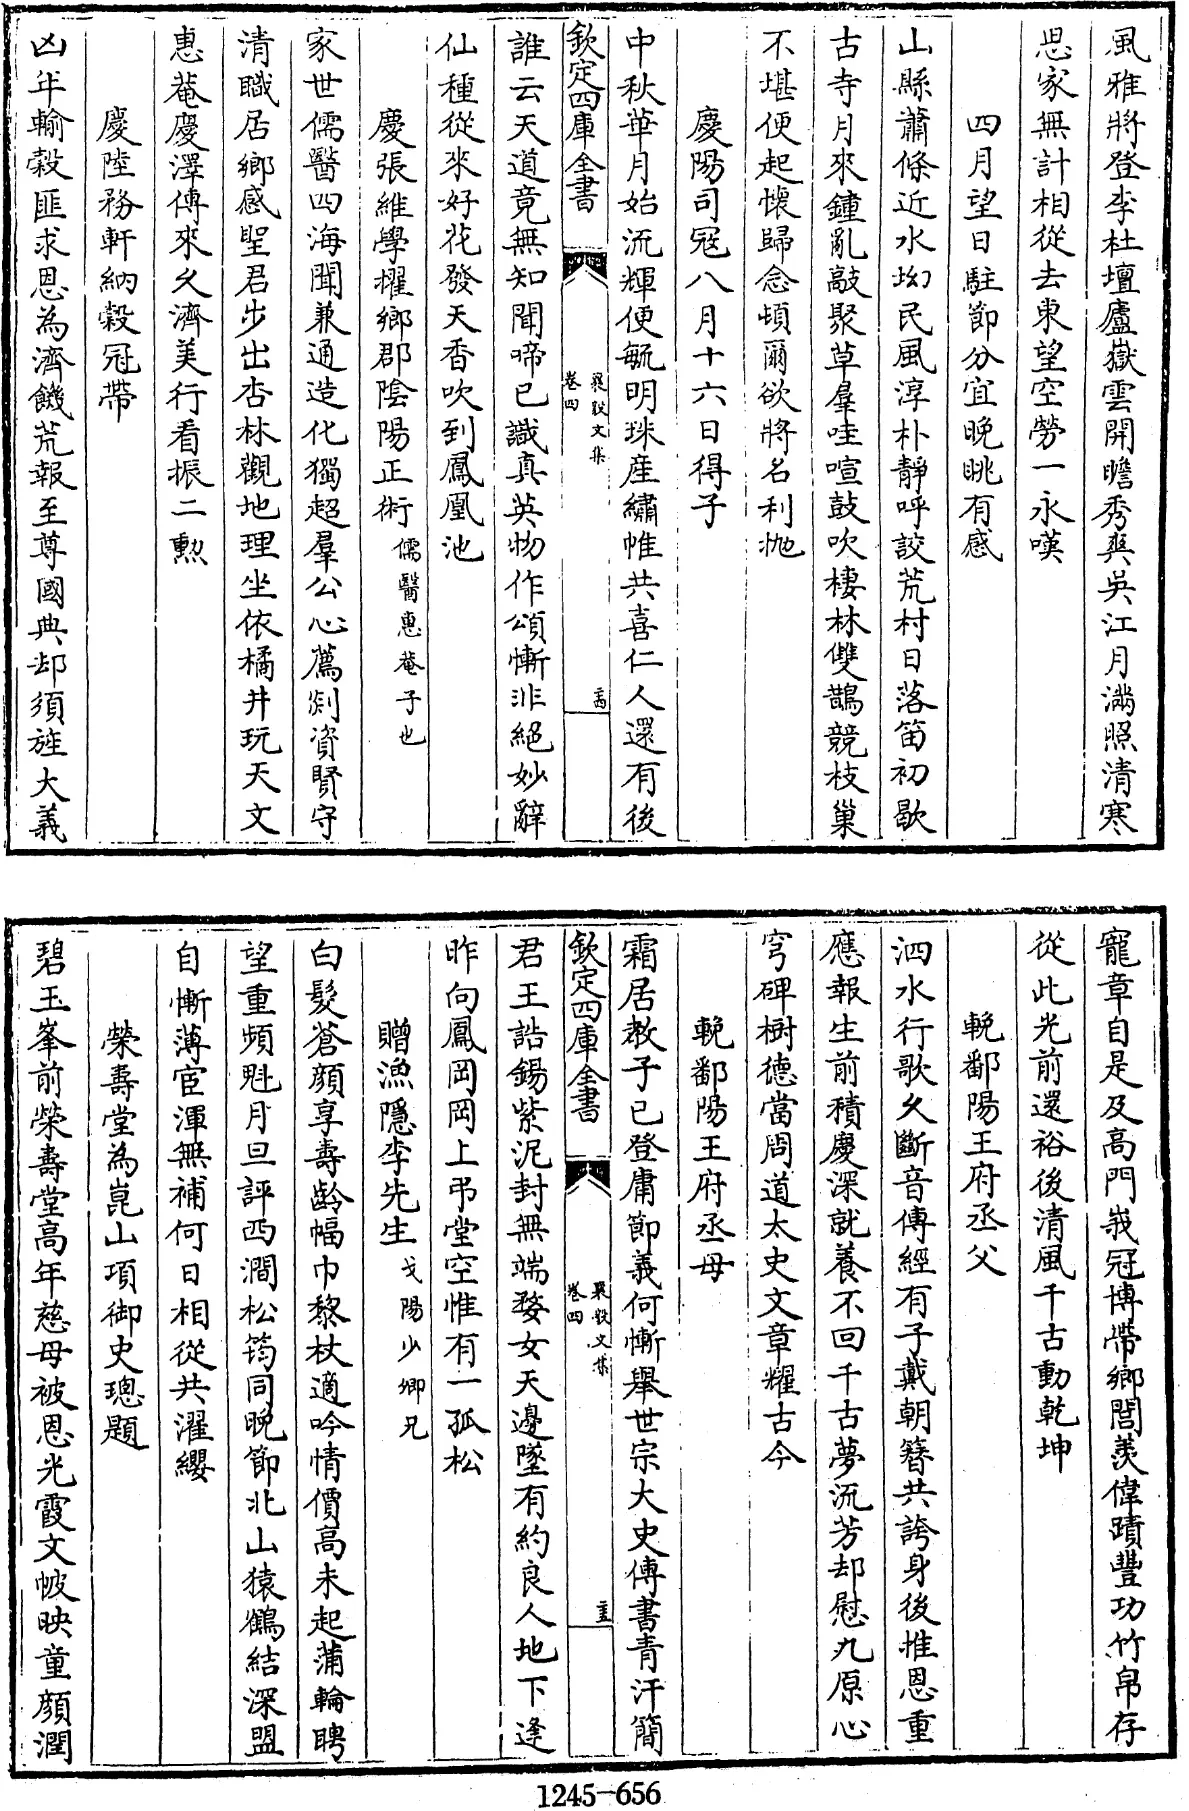 風雅將登李杜壇廬嶽雲開瞻秀爽吳江月滿照清寒
思家無計相從去東望空勞一永嘆
四月望日駐節分宜晚眺有感
山縣蕭條近水坳民風淳朴靜呼詨荒村日落笛初歇
古寺月來鐘亂敲聚草羣哇喧鼓吹棲林雙鵲競枝巢
不堪便起懷歸念頓爾欲將名利拋
慶陽司冦八月十六日得子
中秋華月始流輝便毓明珠産繡帷共喜仁人還有後
欽定四庫全書
襄毅文集
卷四
誰云天道竟無知聞啼已識真英物作頌慚非絕妙辭
仙種從來好花發天香吹到鳳凰池
慶張維學擢鄉郡陰陽正術儒醫惠菴子也
家世儒醫四海聞兼通造化獨超羣公心薦剡資賢守
清職居鄉感聖君步出杏林觀地理坐依橘井玩天文
惠菴慶澤傳來久濟美行看振二勲
慶陸務軒納穀冠帶
凶年輸穀匪求恩為濟饑荒報至尊國典却須旌大義
寵章自是及高門峩冠博帶鄉閭羨偉蹟豐功竹帛存
從此光前還裕後清風千古動乾坤
輓鄱陽王府丞父
泗水行歌久斷音傳經有子戴朝簪共誇身後推恩重
應報生前積慶深就養不回千古夢流芳却慰九原心
穹碑樹德當周道太史文章耀古今
輓鄱陽王府丞母
霜居教子已登庸節義何慚舉世宗大史傳書青汗簡
欽定四庫全書
襄毅文集
卷四
君王誥錫紫泥封無端婺女天邊墜有約良人地下逢
昨向鳳岡岡上弔堂空惟有一孤松
贈漁隱李先生弋陽少卿兄
白髮蒼顔享壽齡幅巾藜杖適吟情價高未起蒲輪聘
望重頻魁月旦評西澗松筠同晚節北山猿鶴結深盟
自慚薄宦渾無補何日相從共濯纓
榮壽堂為崑山項御史璁題
碧玉峯前榮壽堂高年慈母被恩光霞文帔映童顔潤
1245-656